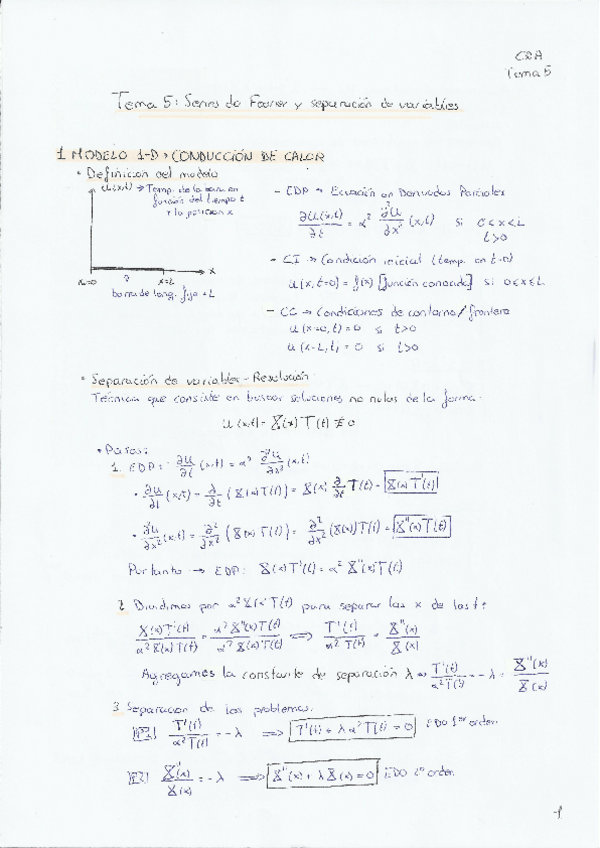 EDA
Tema 5
Tema 5: Series de Fourier y separación de variables
1 MODELO 1-D → CONDUCCIÓN DE CALOR
• Definición del modelo
u(x,t) → Temp. de la barra en
función del tiempo t
y la posición x
x=0 x=L x
barra de long. fijo = L
- EDP → Ecuación en Derivadas Parciales
∂u(x,t)/∂t = α² ∂²u/∂x² (x,t) si 0<x<L
t>0
- CI → Condición inicial (temp. en t=0)
u(x,t=0) = f(x) [función conocida] si 0≤x≤L
- CC → Condiciones de contorno/frontera
u(x=0,t)=0 si t>0
u(x=L,t)=0 si t>0
• Separación de variables - Resolución
Técnica que consiste en buscar soluciones no nulas de la forma:
u(x,t) = X(x)T(t) ≠ 0
• Pasos:
1. EDP: ∂u/∂t (x,t) = α² ∂²u/∂x² (x,t)
• ∂u/∂t (x,t) = ∂/∂t (X(x)T(t)) = X(x) ∂/∂t T(t) = X(x)T'(t)
• ∂²u/∂x² (x,t) = ∂²/∂x² (X(x)T(t)) = ∂²/∂x² (X(x))T(t) = X''(x)T(t)
Por tanto → EDP: X(x)T'(t) = α² X''(x)T(t)
2. Dividimos por α²X(x)T(t) para separar las x de las t:
X(x)T'(t)/α²X(x)T(t) = α²X''(x)T(t)/α²X(x)T(t) ⟹ T'(t)/α²T(t) = X''(x)/X(x)
Agregamos la constante de separación λ → T'(t)/α²T(t) = -λ = X''(x)/X(x)
3. Separación de los problemas:
[P1] T'(t)/α²T(t) = -λ ⟹ T'(t) + λα²T(t) = 0 EDO 1er orden.
[P2] X''(x)/X(x) = -λ ⟹ X''(x) + λX(x) = 0 EDO 2º orden.
-1